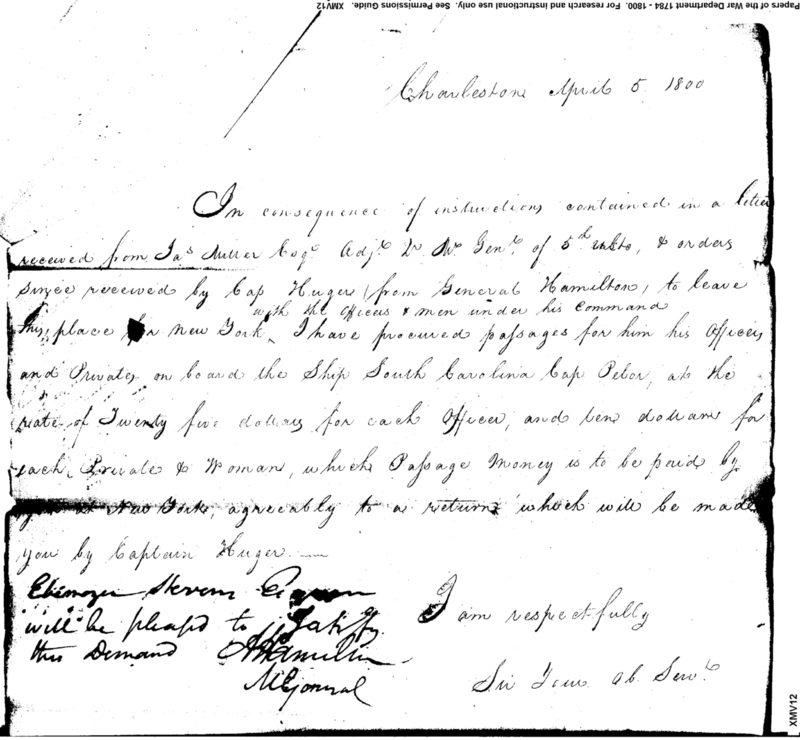 Papers of the War Department 1784 - 1800. For research and instructional use only. See Permissions Guide. XMV12
Charlestone April 5 1800
In consequence of instructions contained in a letter
received from Jas Miller Esqr Adjt Qr Mr Genl of 5th inst, & orders
since received by Cap Huger from General Hamilton, to leave
with the Officers & men under his command
this place for New York, I have procured passages for him his Officers
and Privates on board the Ship South Carolina Cap Pelor, at the
rate of Twenty five dollars for each Officer, and ten dollars for
each Private & Woman, which Passage Money is to be paid by
you at New York, agreeably to a return which will be made
you by Captain Huger.
Ebenezer Stevens
will be pleased to satisfy
this Demand A Hamilton
M General
I am respectfully
Sir Your ob. Servt
XMV12